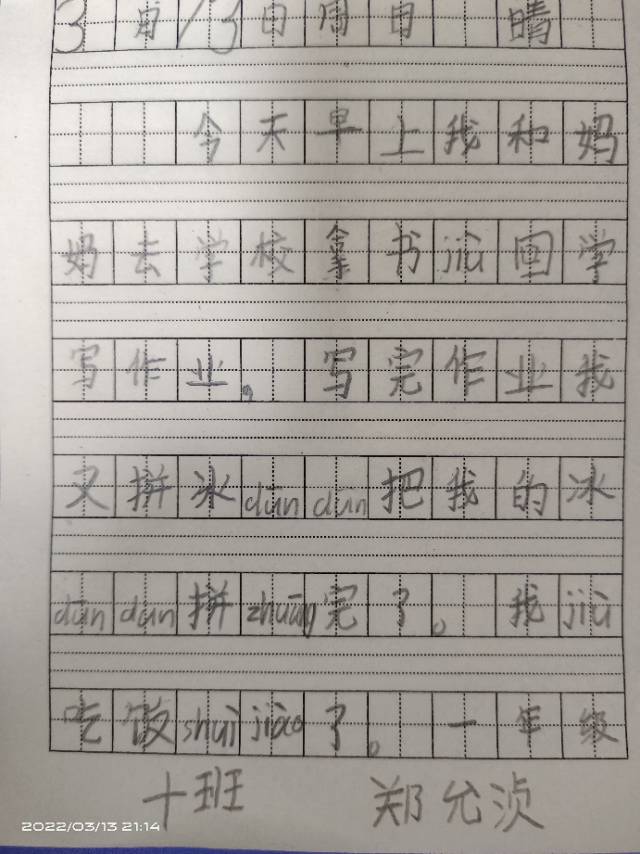 3月13日周日 晴
今天早上我和妈
妈去学校拿书jiù回学
写作业。写完作业我
又拼冰dūn dūn把我的冰
dūn dūn拼zhuāng完了。我jiù
吃饭shuì jiào了。一年级
十班 郑允浈
2022/03/13 21:14